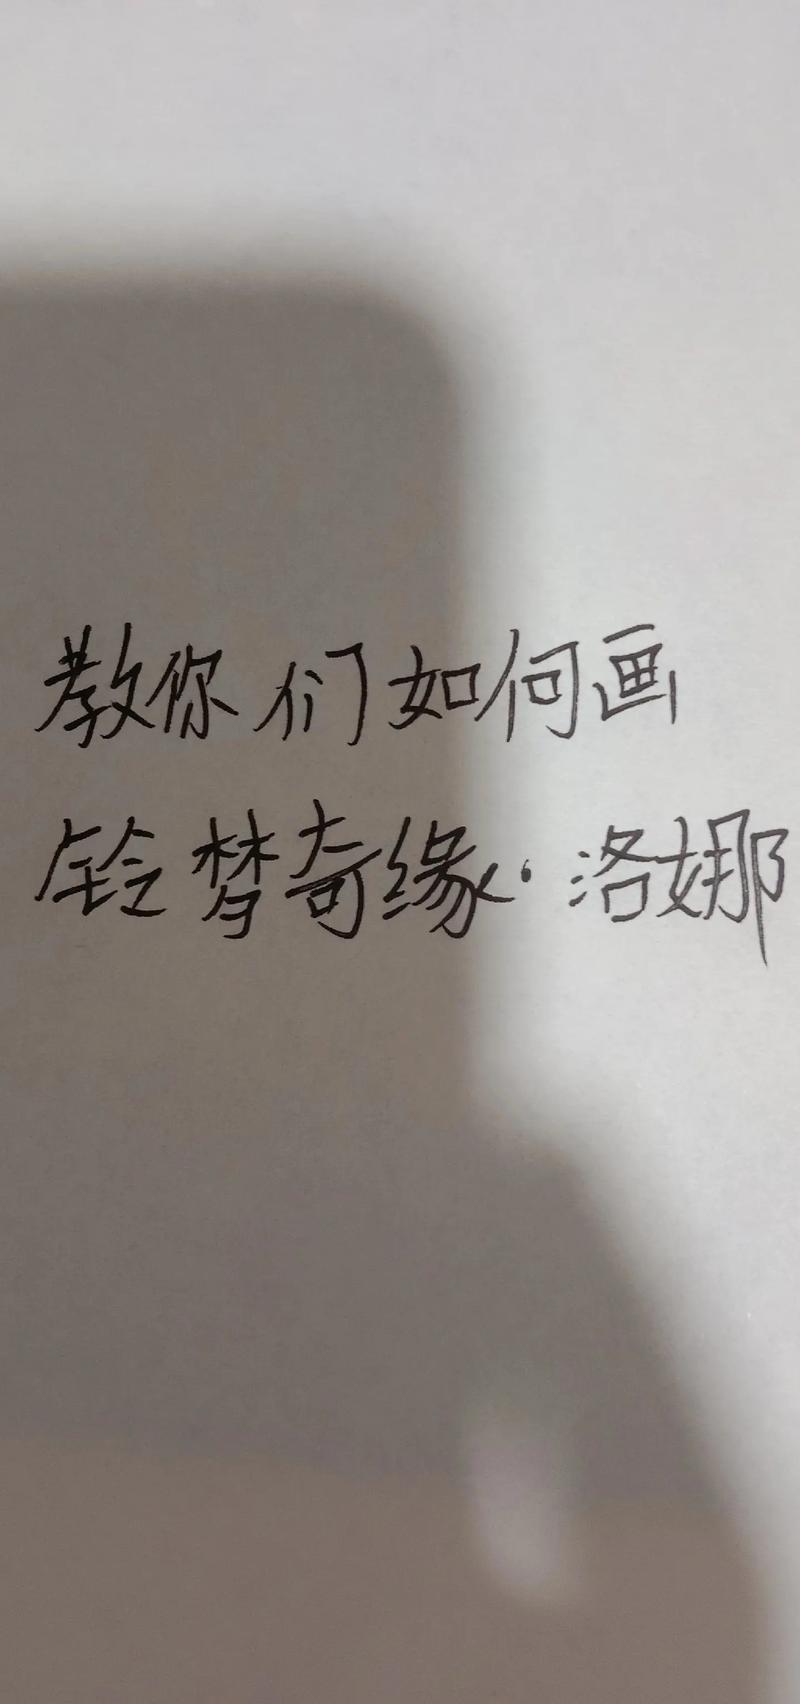 教你们如何画
铃梦奇缘·洛娜